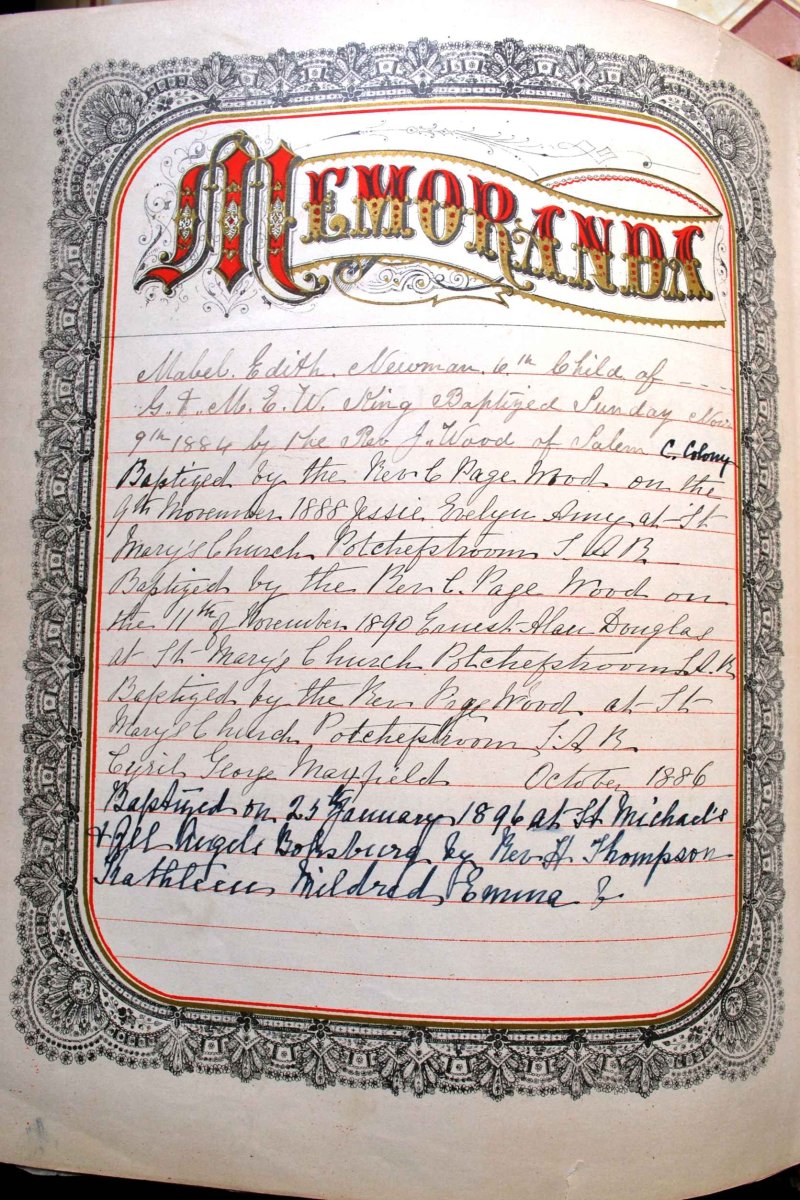 MEMORANDA
Mabel Edith Newman 6th Child of
G. & M. E. W. King Baptized Sunday Nov
9th 1884 by the Rev J. Wood of Salem C. Colony
Baptized by the Rev C Page Wood on the
9th November 1888 Jessie Evelyn Amy at St
Mary's Church Potchefstroom S A R
Baptized by the Rev C. Page Wood on
the 11th of November 1890 Ernest Alan Douglas
at St Mary's Church Potchefstroom S. A. R
Baptized by the Rev Page Wood at St
Marys Church Potchefstroom S. A R
Cyril George Mayfield October 1886
Baptized on 25th January 1896 at St Michaels
& All Angels Boksburg by Rev H Thompson
Kathleen Mildred Emma